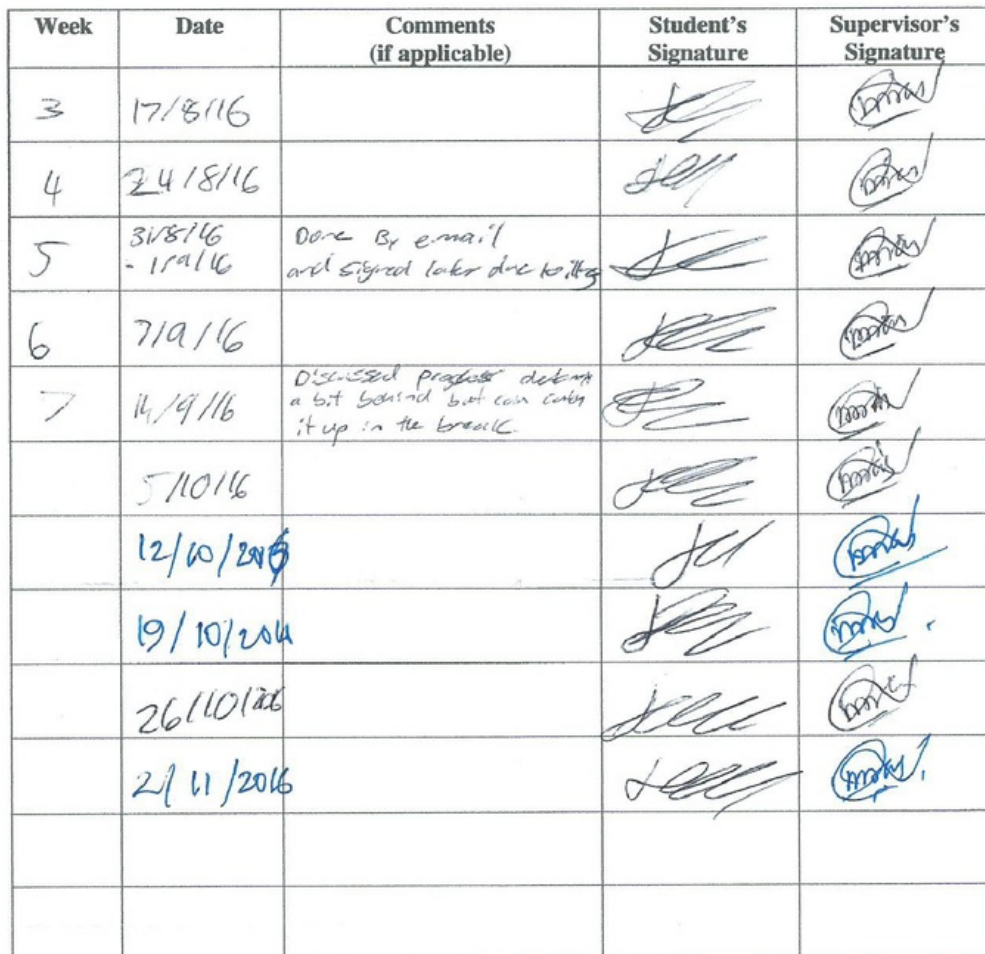 Week Date Comments (if applicable) Student's Signature Supervisor's Signature
3 17/8/16
4 24/8/16
5 31/8/16 - 1/9/16 Done By email
and signed later due to
6 7/9/16
7 14/9/16 Discussed progress
a bit behind but can
it up in the break.
5/10/16
12/10/2016
19/10/2016
26/10/2016
2/11/2016